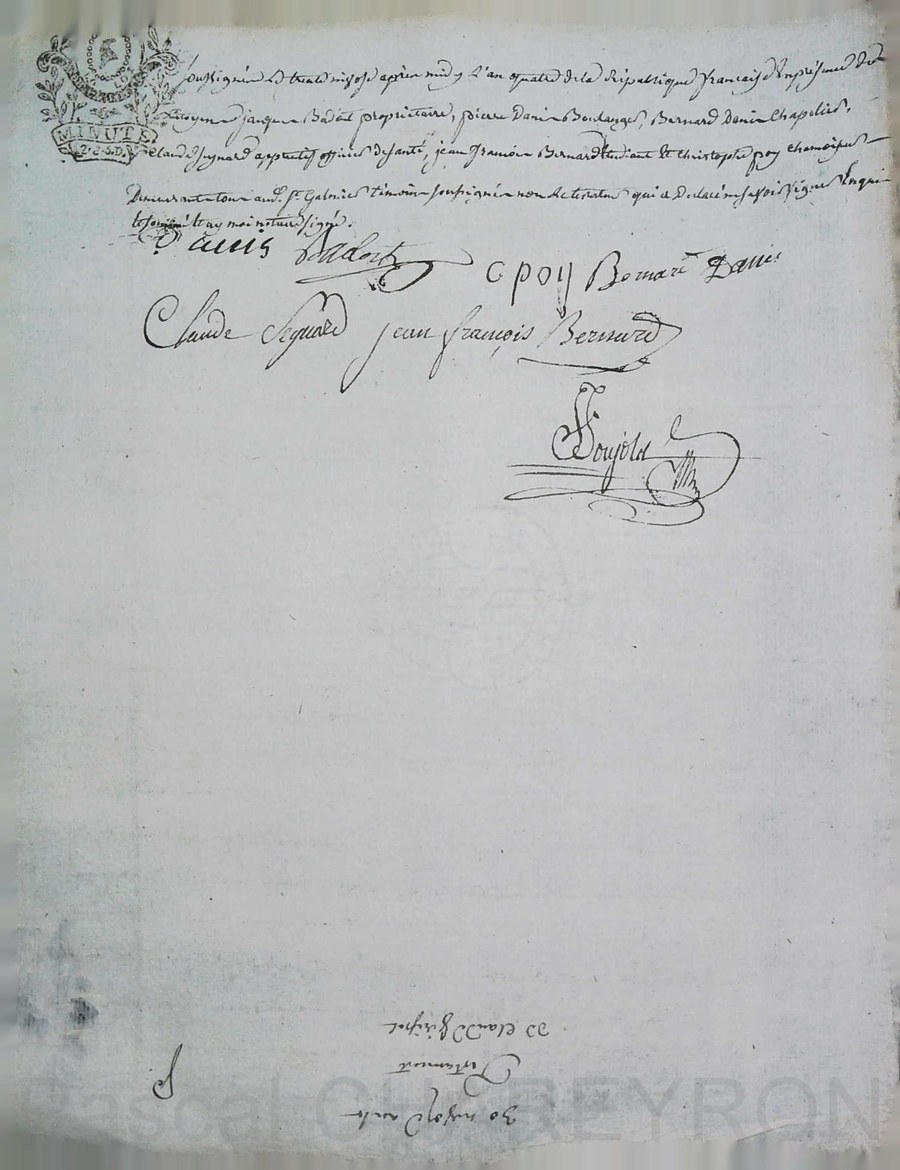 MINUTE
soussigné Le trente nivose après midy L'an quatre de la République francaise En présence des
Citoyens jacques Badost propriétaire, pierre Danis Boulanger, Bernard Danis Chapelier,
Claude Seynard apprentif officier de santé, jean françois Bernard Etudiant Et Christophe poy chamoiseur
Demeurants tous aud. St. Galmier témoins soussignés non le testateur qui a Déclaré ne savoir signer Enquis
Et moi notaire signé.
Danis Badost cpoy Bernard Danis
Claude Seynard jean françois Bernard
30 nivose an 4
Testament
De Claude
Pascal CHAREYRON